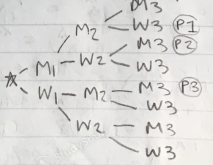 M3
M2
W3 P1
M3 P2
M1 W2
W3
W1 M2 M3 P3
W3
W2 M3
W3